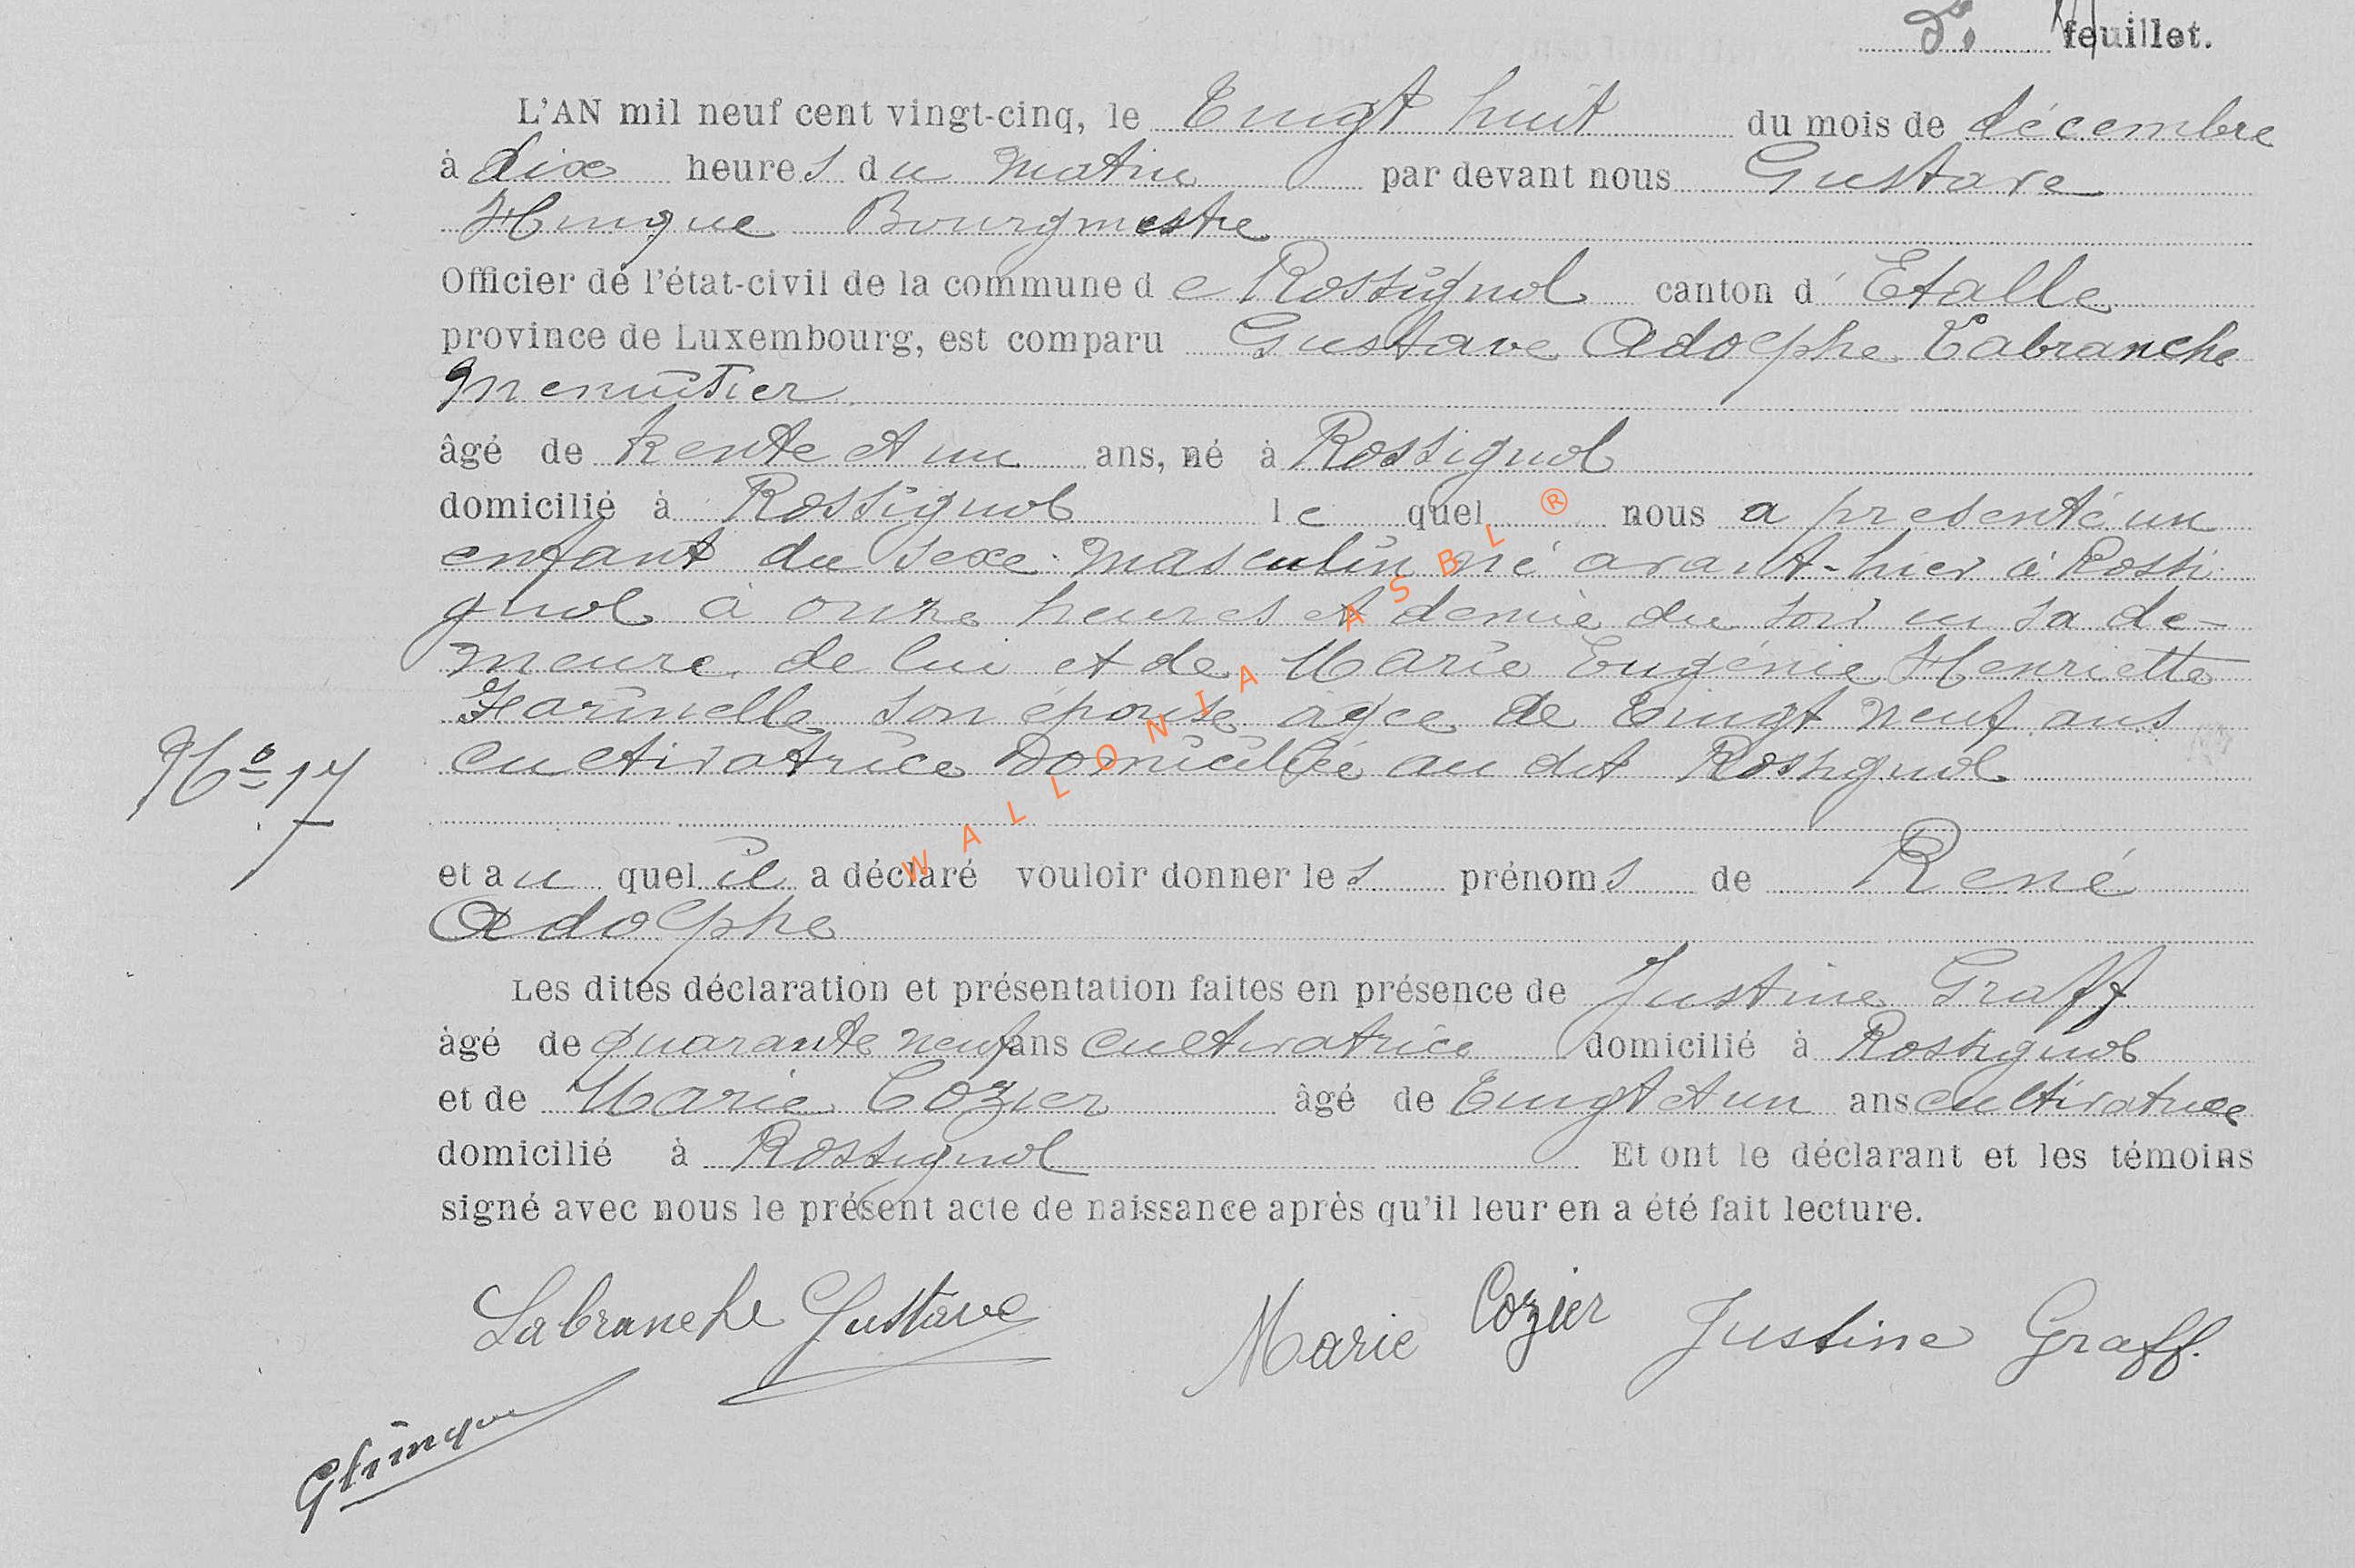 5. feuillet.
L'AN mil neuf cent vingt-cinq, le Vingt huit du mois de décembre
à dix heures du matin par devant nous Gustave
Hinque Bourgmestre
Officier de l'état-civil de la commune de Rossignol canton d' Etalle
province de Luxembourg, est comparu Gustave Adolphe Labranche
Menuisier
âgé de trente et un ans, né à Rossignol
domicilié à Rossignol le quel nous a présenté un
enfant du sexe masculin né avant-hier à Rossi
gnol à onze heures et demie du soir en sa de-
meure, de lui et de Marie Eugénie Henriette
Farinelle son épouse agée de Vingt neuf ans
cultivatrice domiciliée au dit Rossignol
No 17
et au quel il a déclaré vouloir donner les prénoms de René
Adolphe
Les dites déclaration et présentation faites en présence de Justine Graff
âgé de quarante neuf ans cultivatrice domicilié à Rossignol
et de Marie Cozier âgé de Vingt et un ans cultivatrice
domicilié à Rossignol Et ont le déclarant et les témoins
signé avec nous le présent acte de naissance après qu'il leur en a été fait lecture.
Labranche Gustave Marie Cozier Justine Graff.
GHinque
WALLONIA ASBL ®